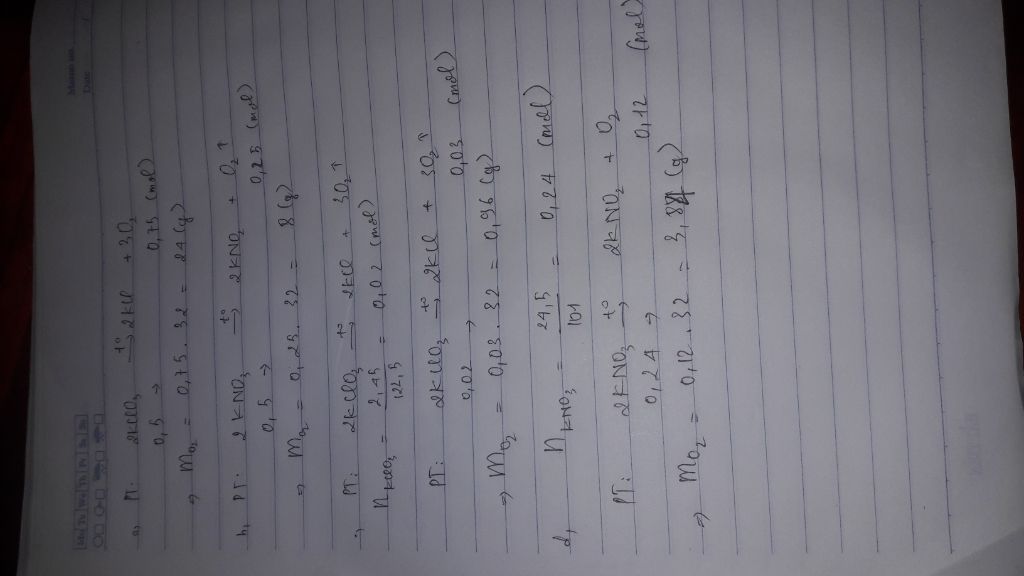 a, PT: 2KClO₃ t°→ 2KCl + 3O₂
0,5 → 0,75 (mol)
⇒ mO₂ = 0,75 . 32 = 24 (g)
b, PT: 2KNO₃ t°→ 2KNO₂ + O₂↑
0,5 → 0,25 (mol)
⇒ mO₂ = 0,25 . 32 = 8 (g)
PT: 2KClO₃ t°→ 2KCl + 3O₂↑
nKClO₃ = 2,45/122,5 = 0,02 (mol)
PT: 2KClO₃ t°→ 2KCl + 3O₂↑
0,02 → 0,03 (mol)
⇒ mO₂ = 0,03 . 32 = 0,96 (g)
d, nKNO₃ = 24,5/101 = 0,24 (mol)
PT: 2KNO₃ t°→ 2KNO₂ + O₂
0,24 → 0,12 (mol)
⇒ mO₂ = 0,12 . 32 = 3,8 (g)